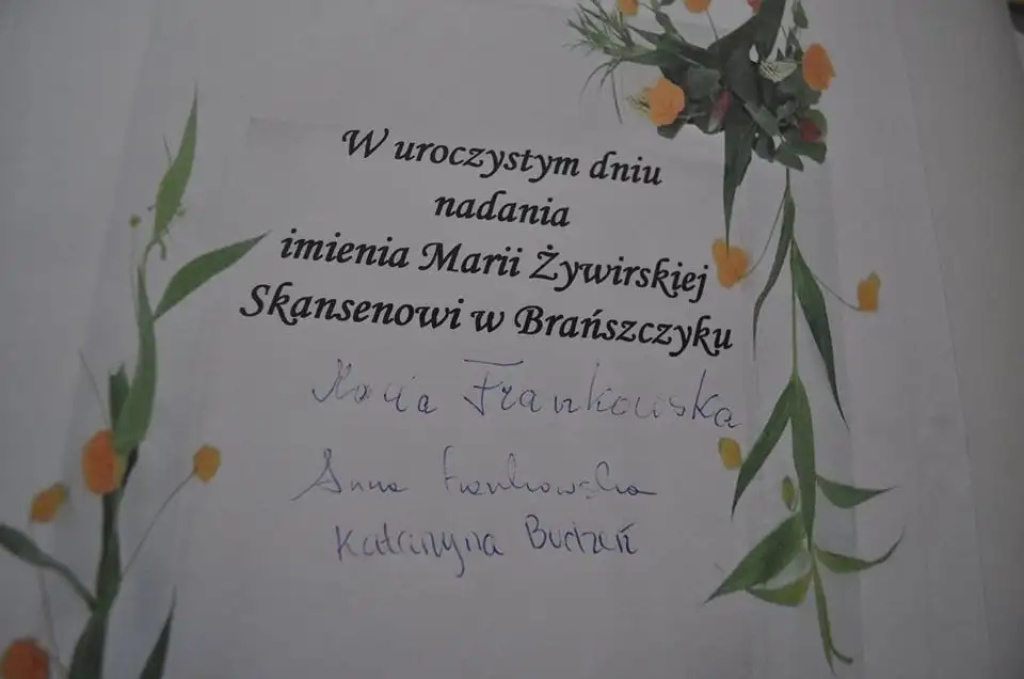 W uroczystym dniu
nadania
imienia Marii Żywirskiej
Skansenowi w Brańszczyku
Maria Frankowska
Anna Frankowska
Katarzyna